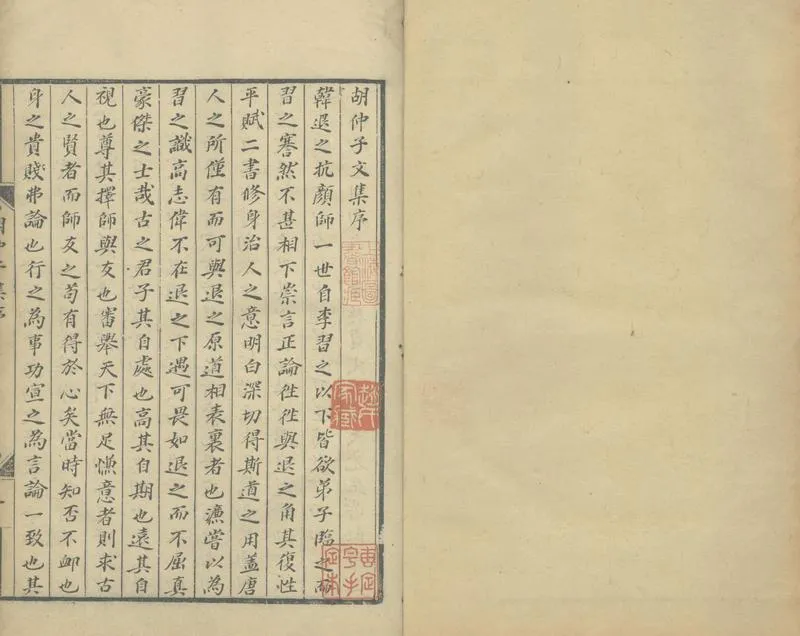 胡仲子文集序
韓退之抗顏師一世自李習之以下皆欲弟子臨之而
習之謇然不甚相下崇言正論徃徃與退之角其復性
平賦二書修身治人之意明白深切得斯道之用盖唐
人之所僅有而可與退之原道相表裏者也濂嘗以為
習之識高志偉不在退之下遇可畏如退之而不屈真
豪傑之士哉古之君子其自處也高其自期也遠其自
視也尊其擇師與友也審舉天下無足慊意者則求古
人之賢者而師友之苟有得於心矣當時知否不卹也
身之貴賤弗論也行之為事功宣之為言論一致也其